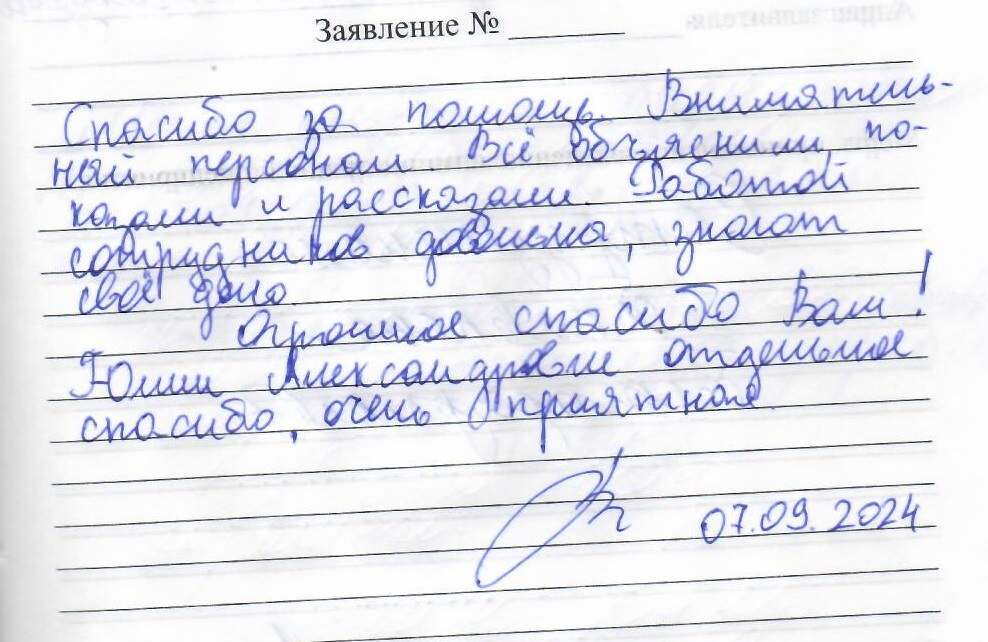 Заявление № ________
Спасибо за помощь. Вниматель-
ный персонал. Всё объяснили, по-
казали и рассказали. Работой
сотрудников довольна, знают
своё дело.
Огромное спасибо Вам!
Юлии Александровне отдельное
спасибо, очень приятная.
07.09.2024